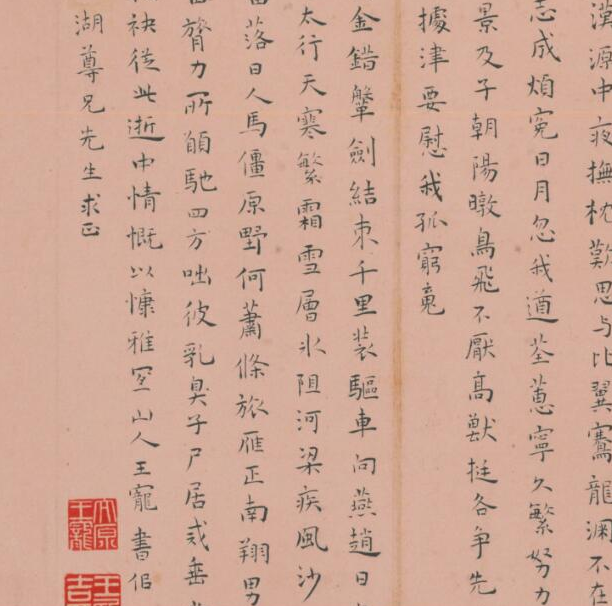 漢源中夜撫枕歎思与比翼騫龍淵不在
志成煩寃日月忽我遒荃蕙寧久繁努力
景及子朝陽暾鳥飛不厭高獸挺各争先
據津要慰我孤窮竟
金錯鞶劍結束千里裝驅車向燕趙日
太行天寒繁霜雪層氷阻河梁疾風沙
落日人馬僵原野何蕭條旅雁正南翔男
膂力所願馳四方咄彼乳臭子尸居戒垂
袂從此逝中情慨以慷雅宜山人王寵書佀
湖尊兄先生求正
王寵